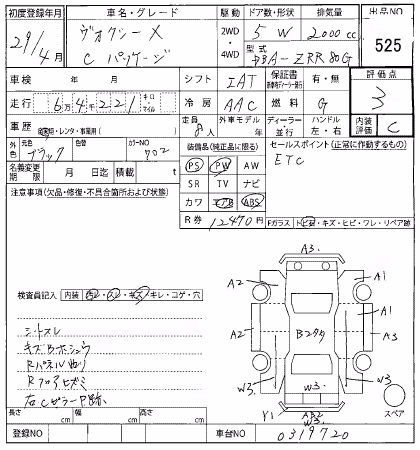 初度登録年月 車名・グレード 駆動 ドア数・形状 排気量 出品NO
29/4月 ヴォクシーX 2WD 5 W 2000cc 525
C パッケージ 4WD 型式 DBA-ZRR80G
車検 年 月 シフト IAT 保証書 有・無 評価点
走行 6万4千221 キロ マイル 冷房 AAC 燃料 G 3
車歴 自家用・レンタ・事業用( ) 定員 8人 外車モデル 年 ディーラー 並行 ハンドル 左・右 内装評価 C
外色 元色 ブラック 色替 カラーNO 202 装備品(純正品に限る) セールスポイント(正常に作動するもの)
名義変更期限 月 日迄 積載 t PS PW AW ETC
注意事項(欠品・修復・不具合箇所および状態) SR TV ナビ
カワ エアB ABS
R券 12470円 Fガラス トビ石・キズ・ヒビ・ワレ・リペア跡
A3.
A2 A1
A1
A2 Bククク A3
W3. W3
W3.
Y1 AB2 W3
スペア
検査員記入 内装 汚れ・スレ・キズ・キレ・コゲ・穴
シートスレ
キズBホシュウ
Rパネル凹リ
Rフロアヒズミ
右CピラーP跡
長さ cm 幅 cm 高さ cm
登録NO 車台NO 0319720